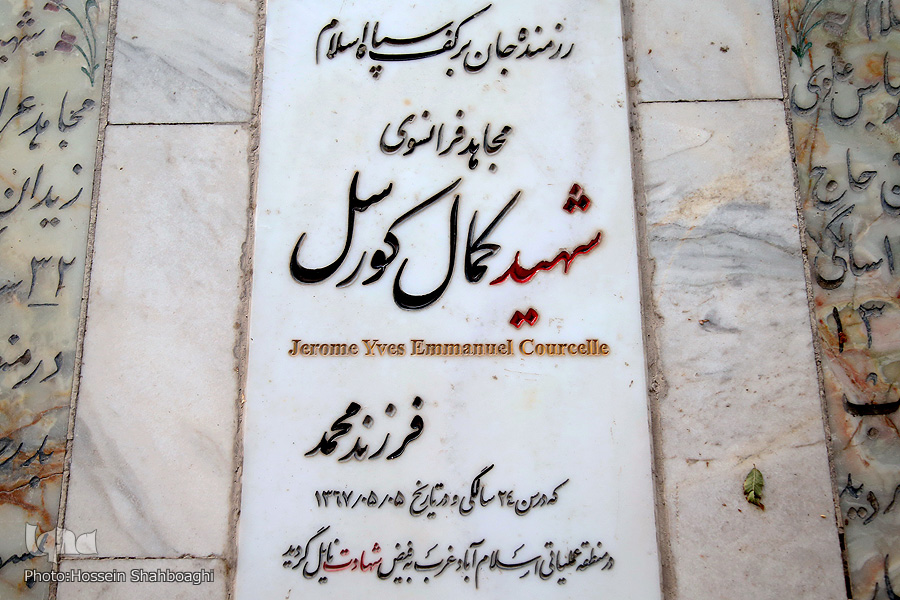 رزمنده جان بر کف سپاه اسلام
مجاهد فرانسوی
شهید کمال کورسل
Jerome Yves Emmanuel Courcelle
فرزند محمد
که در سن ۲٤ سالگی و در تاریخ ۱۳٦۷/۰۵/۰۵
در منطقه عملیاتی اسلام آباد غرب به فیض شهادت نایل گردید
مجاهد
زیدان
۳۲
حاج
iqna
Photo:Hossein Shahboaghi